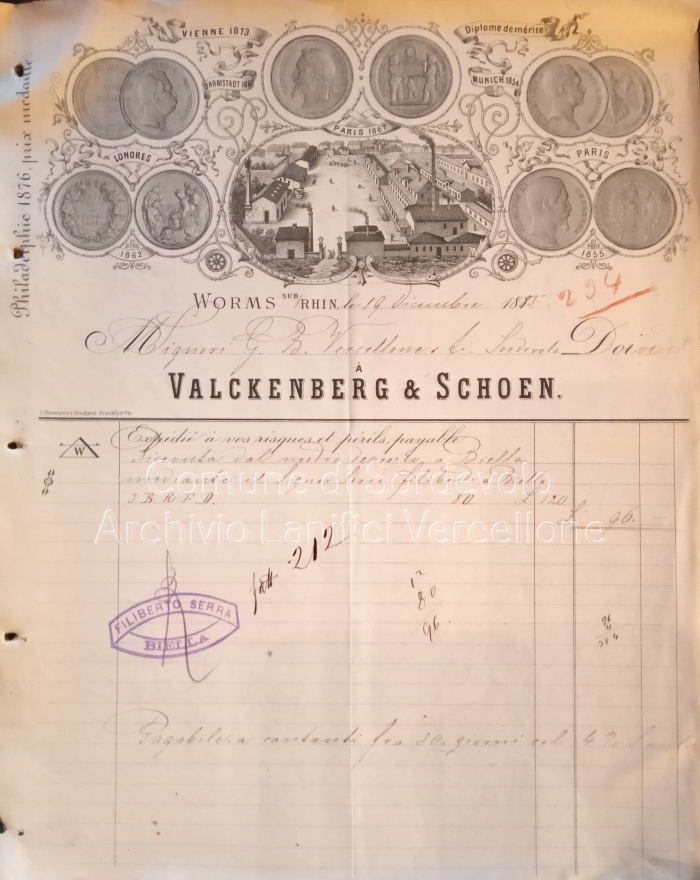 VIENNE 1873
Diplome de mérite
DARMSTADT
MUNICH 1854
PARIS 1867
LONDRES
PARIS
1862
1855.
Philadelphie 1876, prix medaille.
WORMS SUR RHIN, le 19 Dicembre 1885.
294
Signori G. B. Vercellone & C. Sordevolo Doivent
À
VALCKENBERG & SCHOEN.
Frankfurt a/M.
W
Expédié à vos risques et périls, payable
ricevuta dal nostro deposito a Biella
mediante il Signor Serra Filiberto a Biella
3 B. R. F. A. 80 £ 120
£ 96. —
Comune di Sordevolo
Archivio Lanifici Vercellone
fatt 212
12
80
96.
96
4
384
FILIBERTO SERRA
BIELLA
Pagabile a contanti fra 30 giorni col 4%